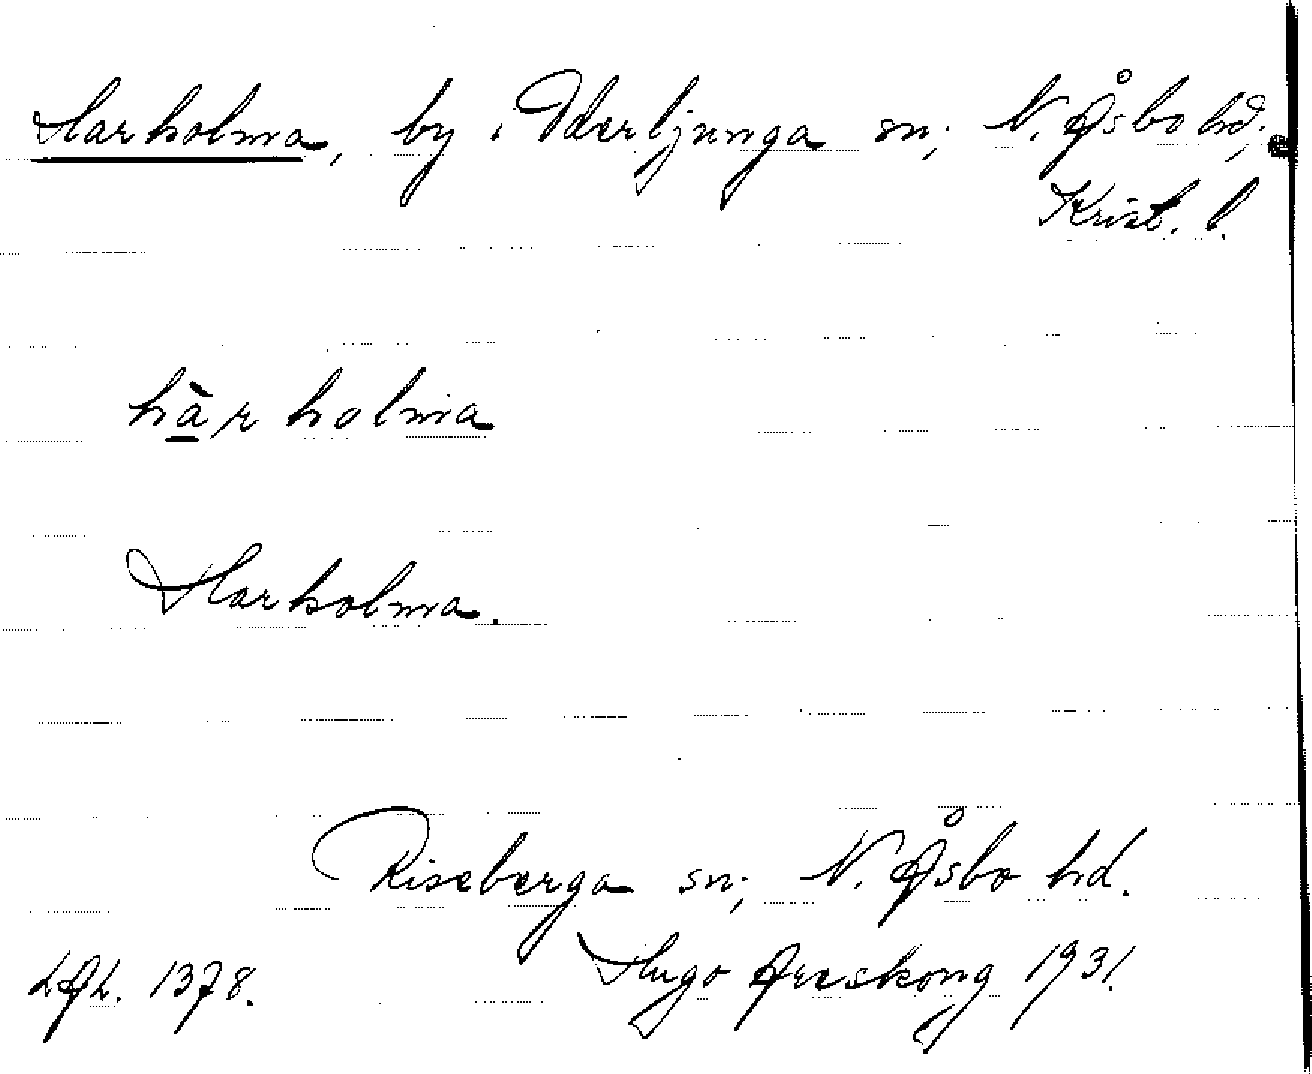 Harholma, by i Öderljunga sn; N. Åsbo hd;
Krist. l.
hàr holma
Harholma.
Riseberga sn; N. Åsbo hd.
Hugo Areskoug 1931.
LAL. 1378.